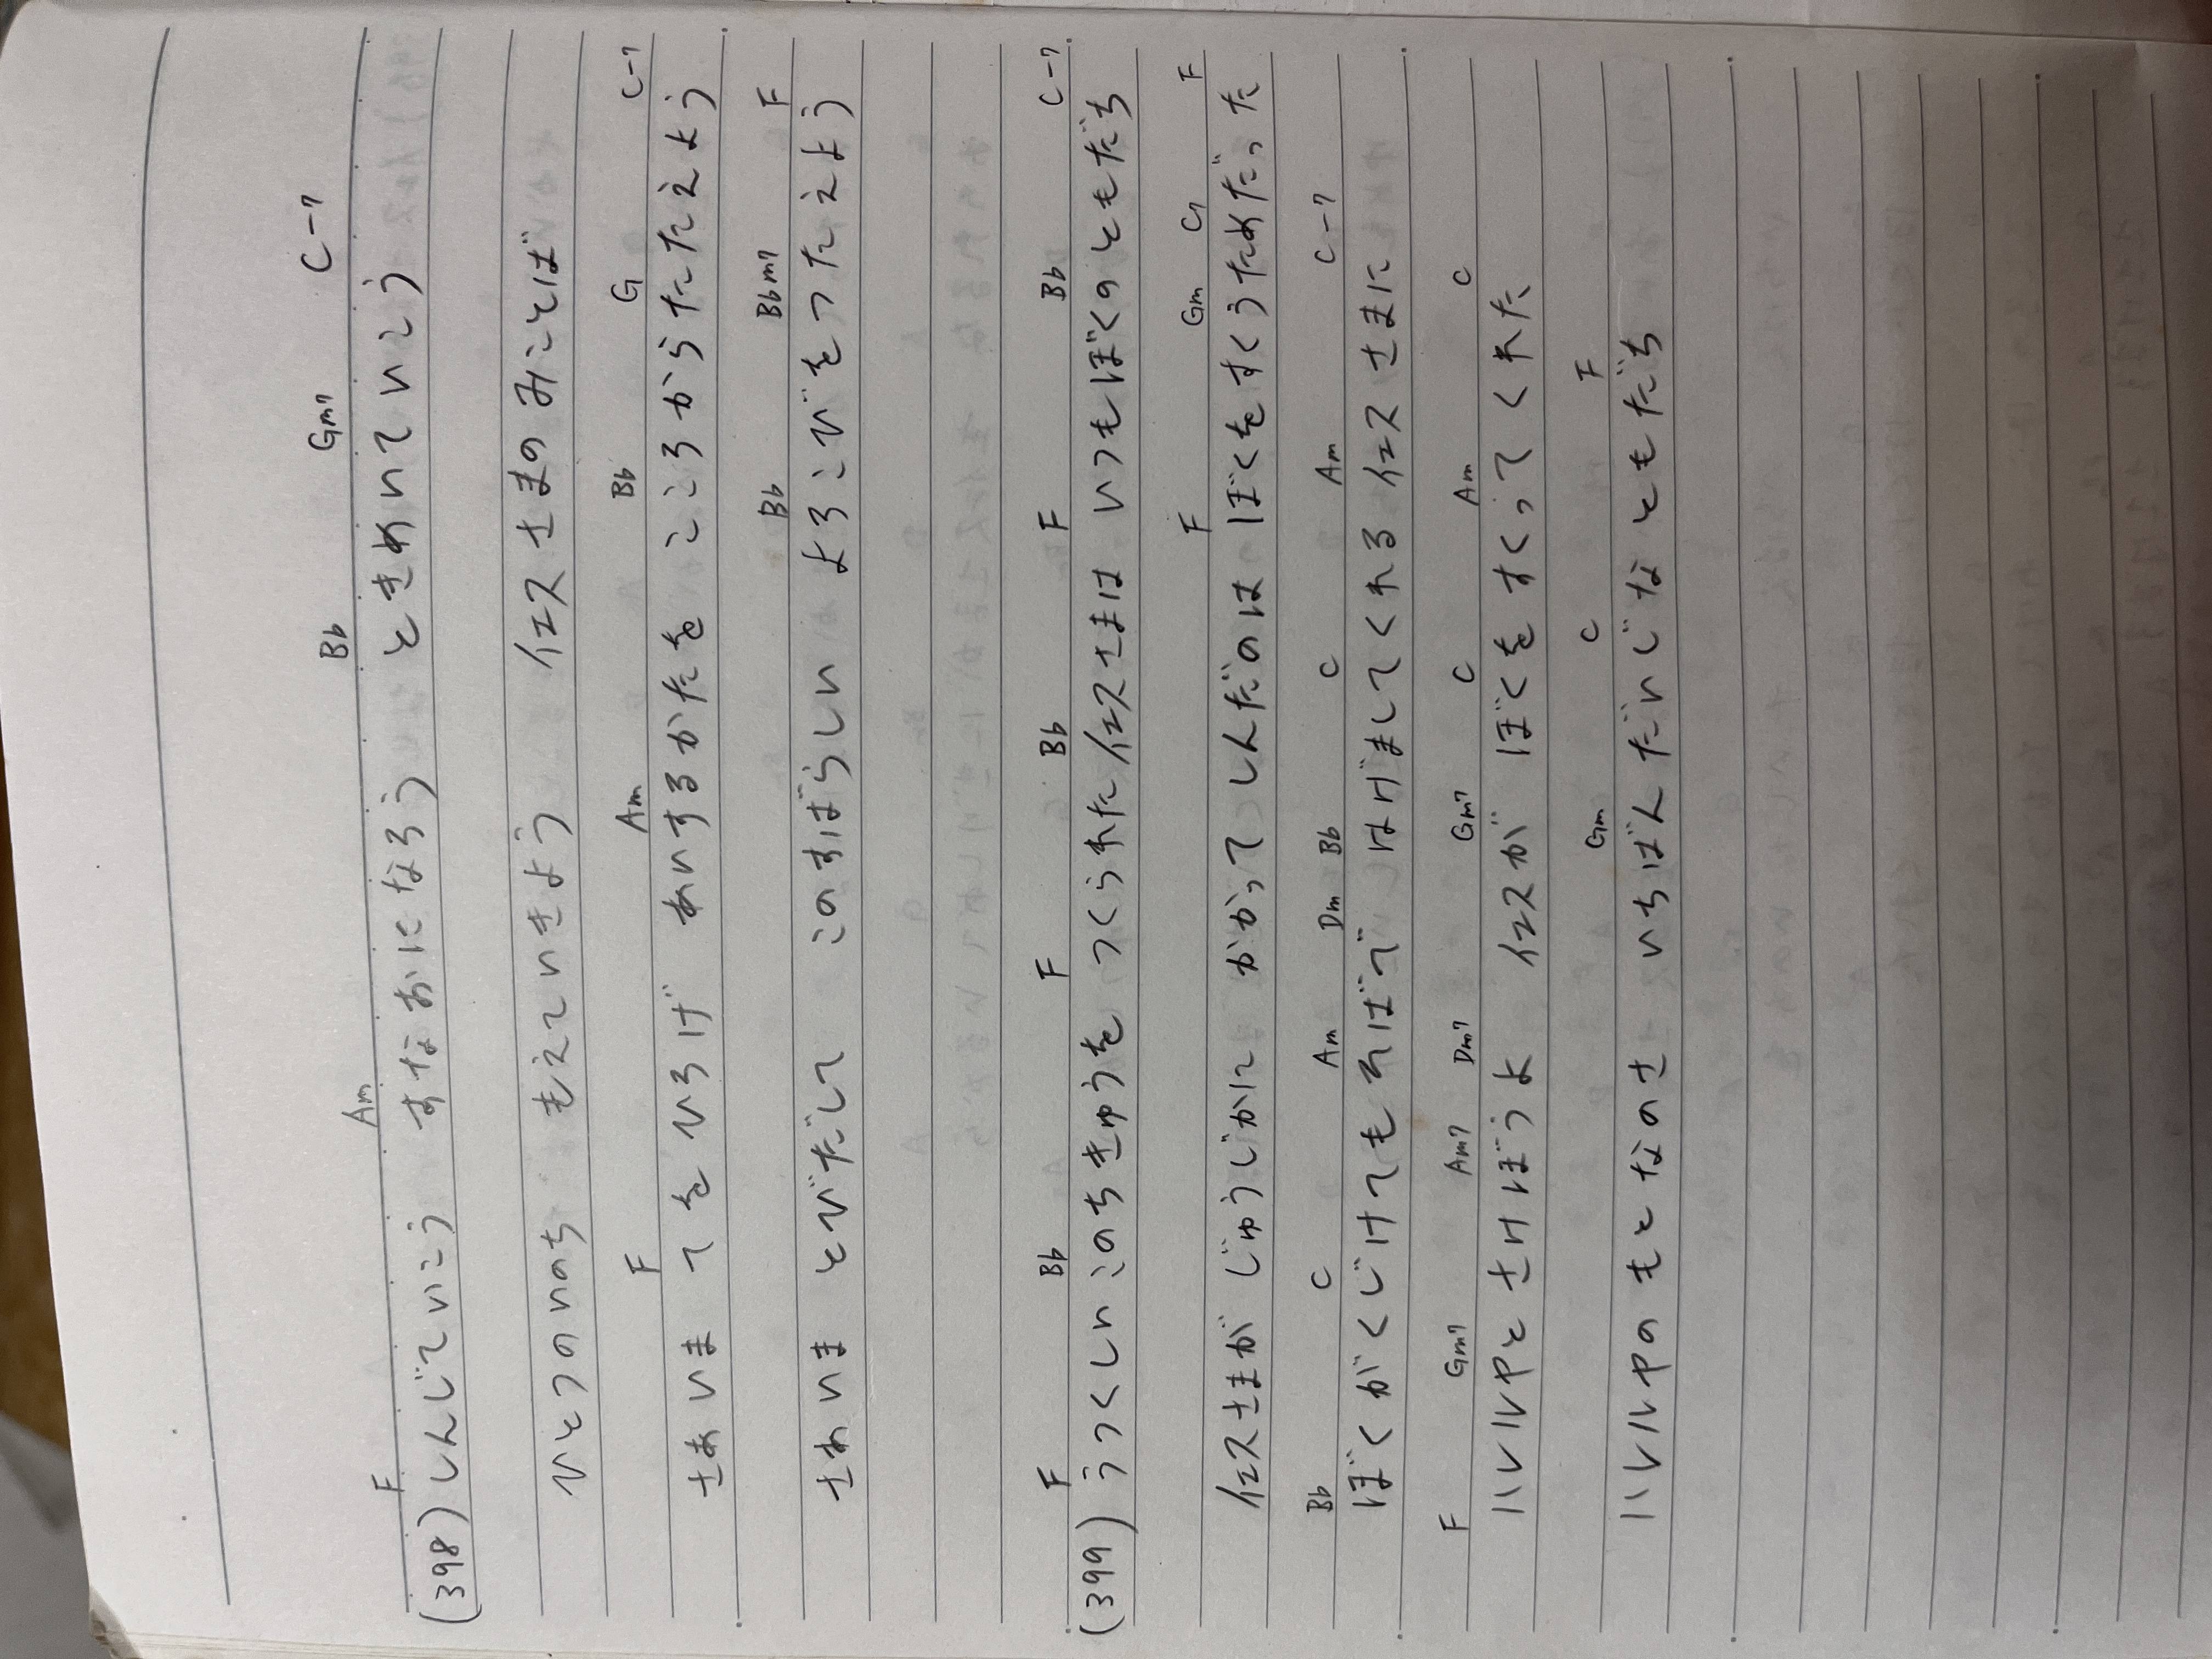 F Am Bb Gm7 C-7
(398) しんじていこう すなおになろう ときめいていこう
ひとつのいのち もえていきよう イエスさまのみことば
F Am Bb G C-7
さあいま てをひろげ あいするかたを こころからたたえよう
Bb Bbm7 F
さあいま とびだして このすばらしい よろこびをつたえよう
F Bb F Bb F Bb C-7
(399) うつくしいこのちきゅうを つくられたイエスさまは いつもぼくのともだち
F Gm C F
イエスさまが じゅうじかに かかって しんだのは ぼくをすくうためだった
Bb C Am Dm Bb C Am C-7
ぼくがくじけても そばで はげましてくれる イエスさまに
F Gm7 Am7 Dm7 Gm7 C Am C
ハレルヤと さけぼうよ イエスが ぼくを すくってくれた
Gm C F
ハレルヤの もとなのさ いちばんだいじなともだち